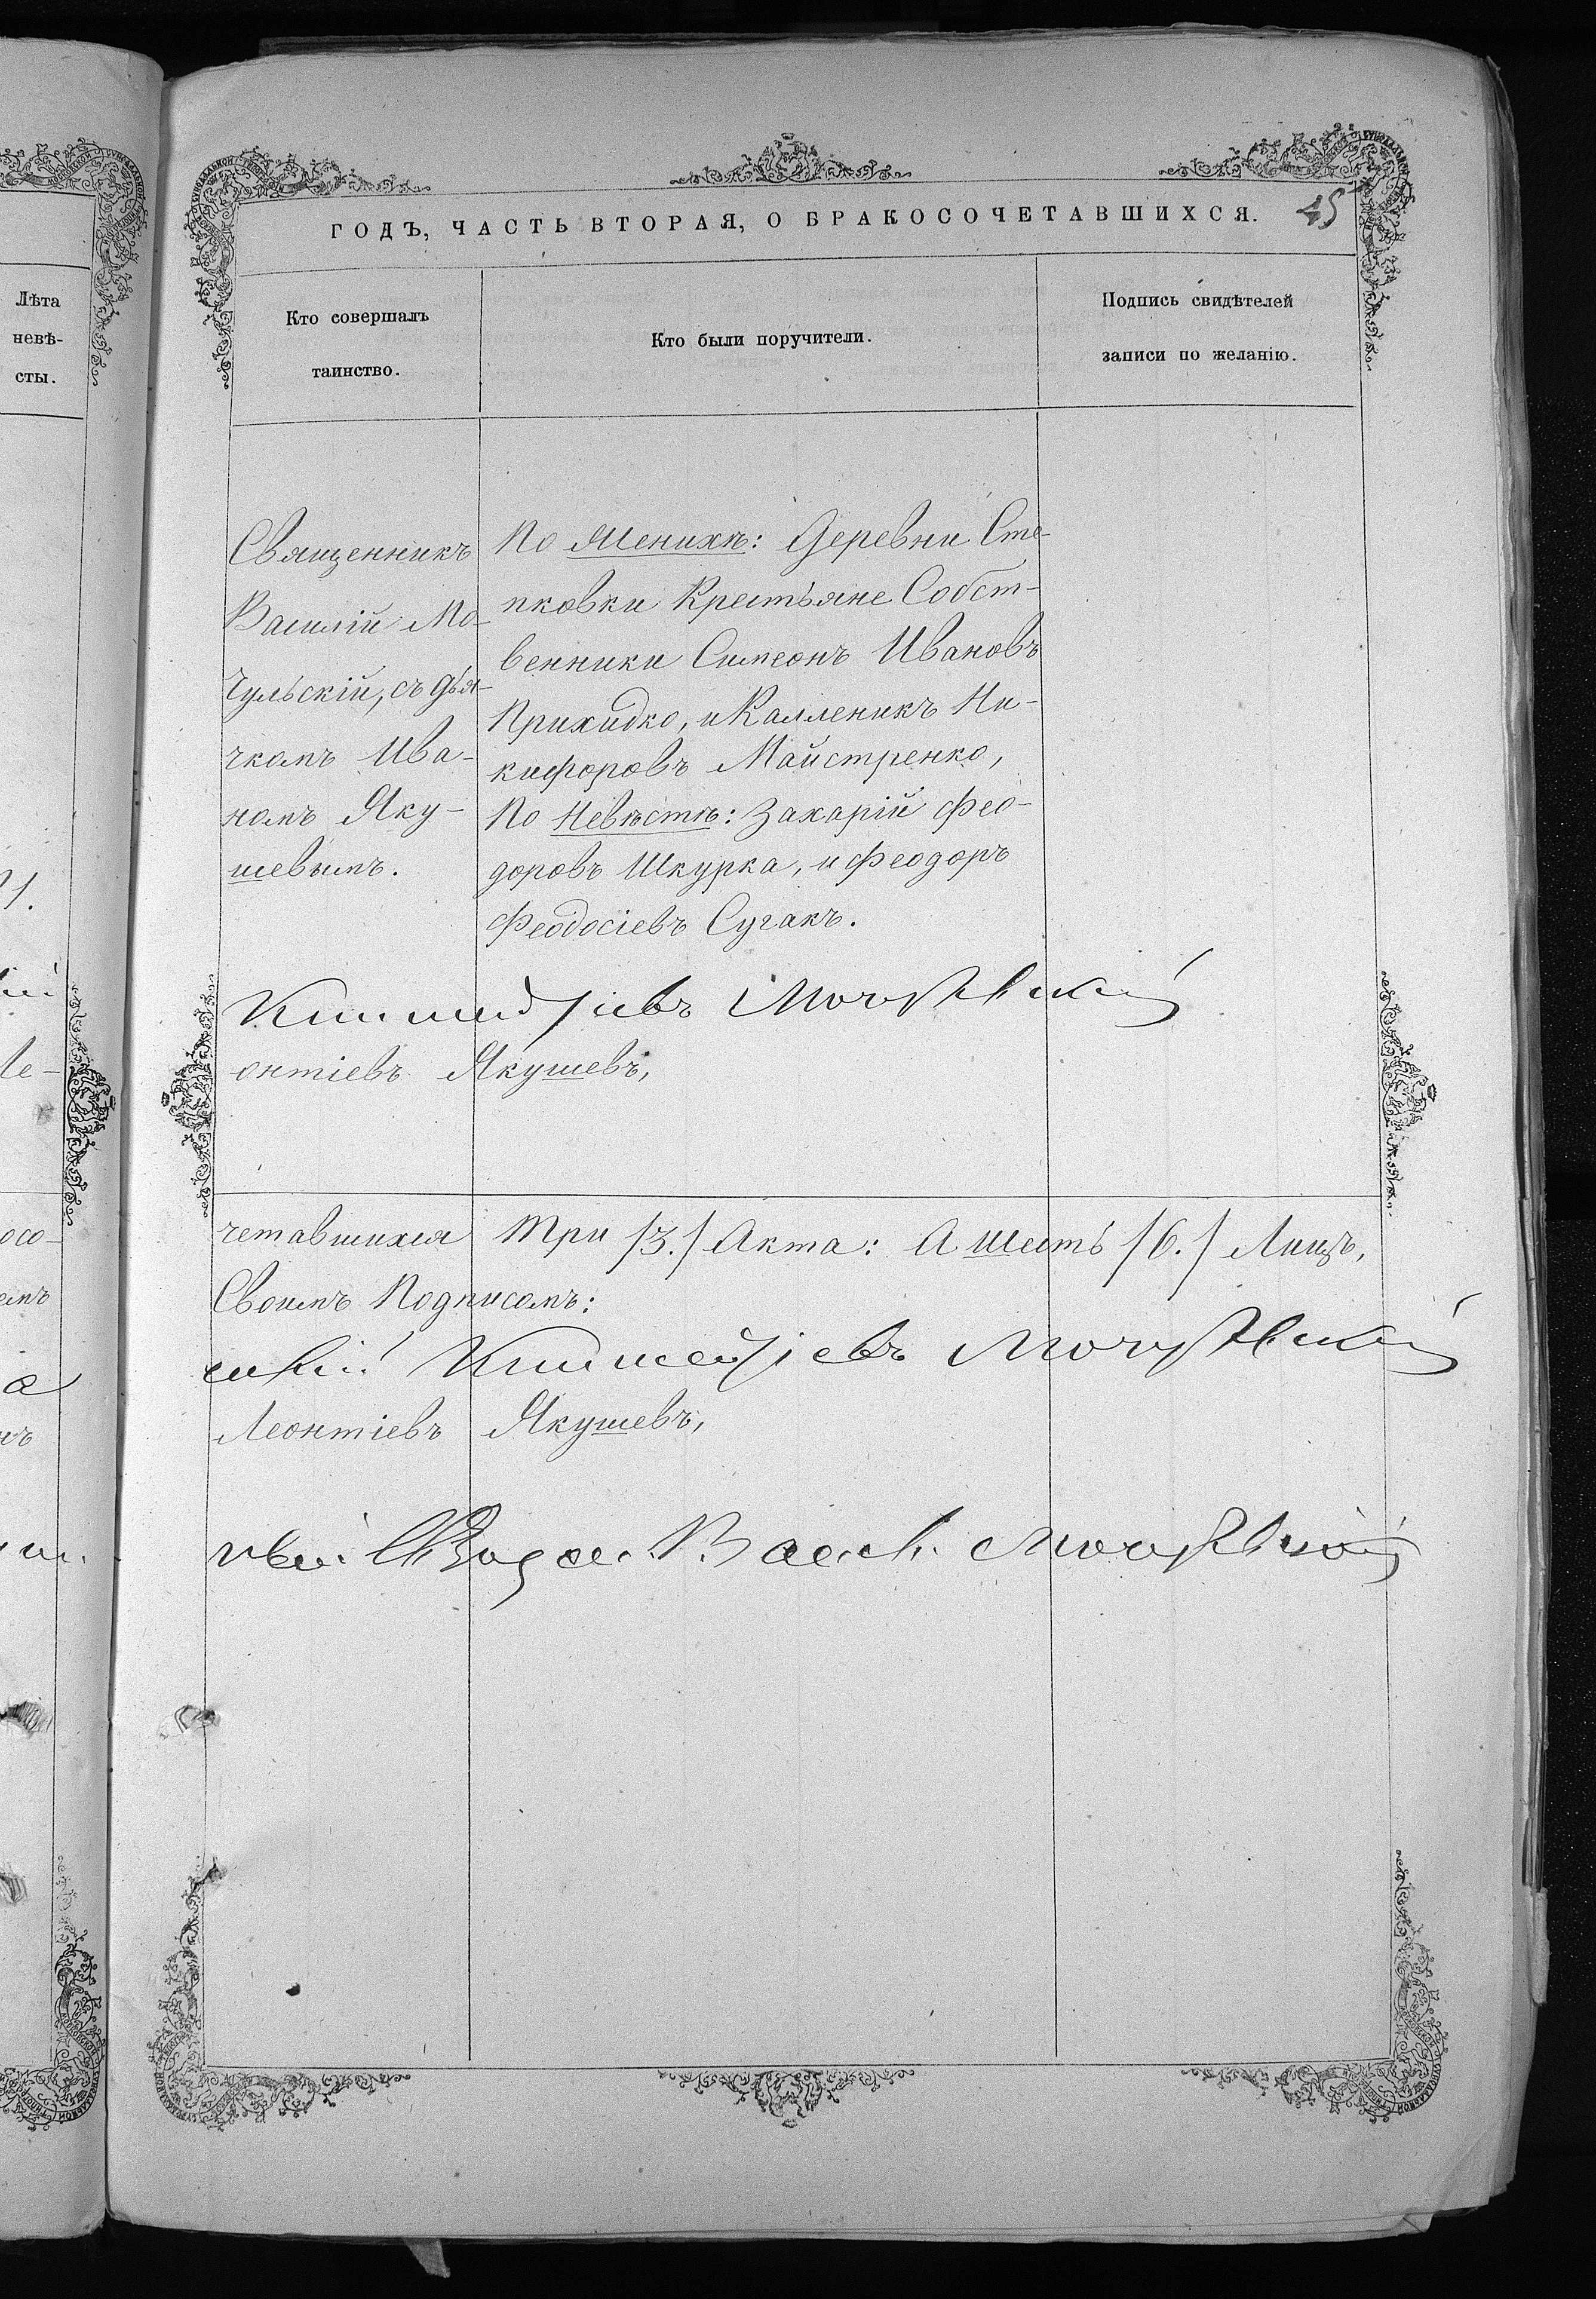 ГОДЪ, ЧАСТЬ ВТОРАЯ, О БРАКОСОЧЕТАВШИХСЯ. 45
Лѣта
невѣ-
сты.
Кто совершалъ
таинство.
Кто были поручители.
Подпись свидѣтелей
записи по желанію.
Священникъ
Василій Мо-
чульскій, съ дья-
чкомъ Ива-
номъ Яку-
шевымъ.
По Женихѣ: Деревни Сте-
пковки Крестьяне Собст-
венники Симеонъ Ивановъ
Прихидко, и Калленикъ Ни-
кифоровъ Майстренко,
По Невѣстѣ: Захарій Фео-
доровъ Шкурка, и Феодоръ
Феодосіевъ Сугакъ.
Мочульскій
онтіевъ Якушевъ,
четавшихся Три /3./ Акта: А шесть /6./ Лицъ,
Своимъ Подписомъ:
Мочульскій
Леонтіевъ Якушевъ,
Мочульскій